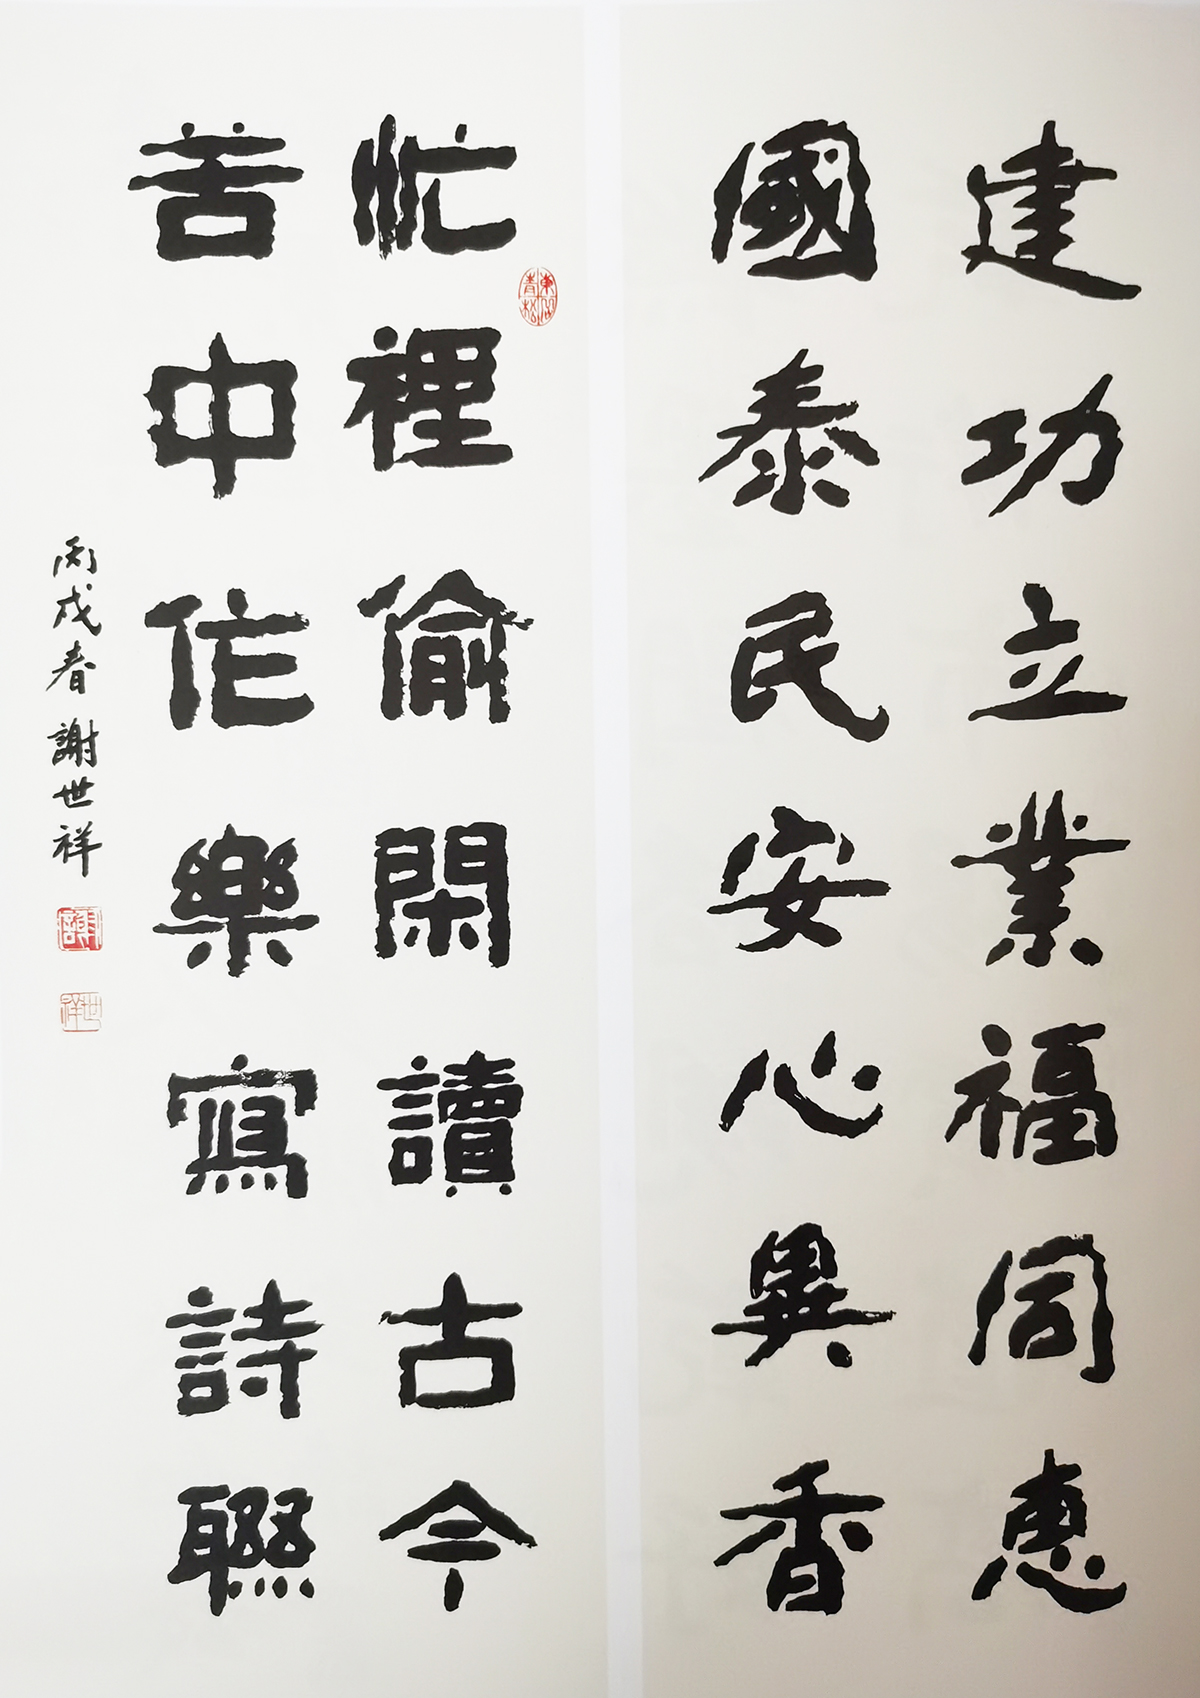 建功立業福同惠
國泰民安心異香
忙裡偷閑讀古今
苦中作樂寫詩聯
丙戌春 謝世祥
謝
世祥